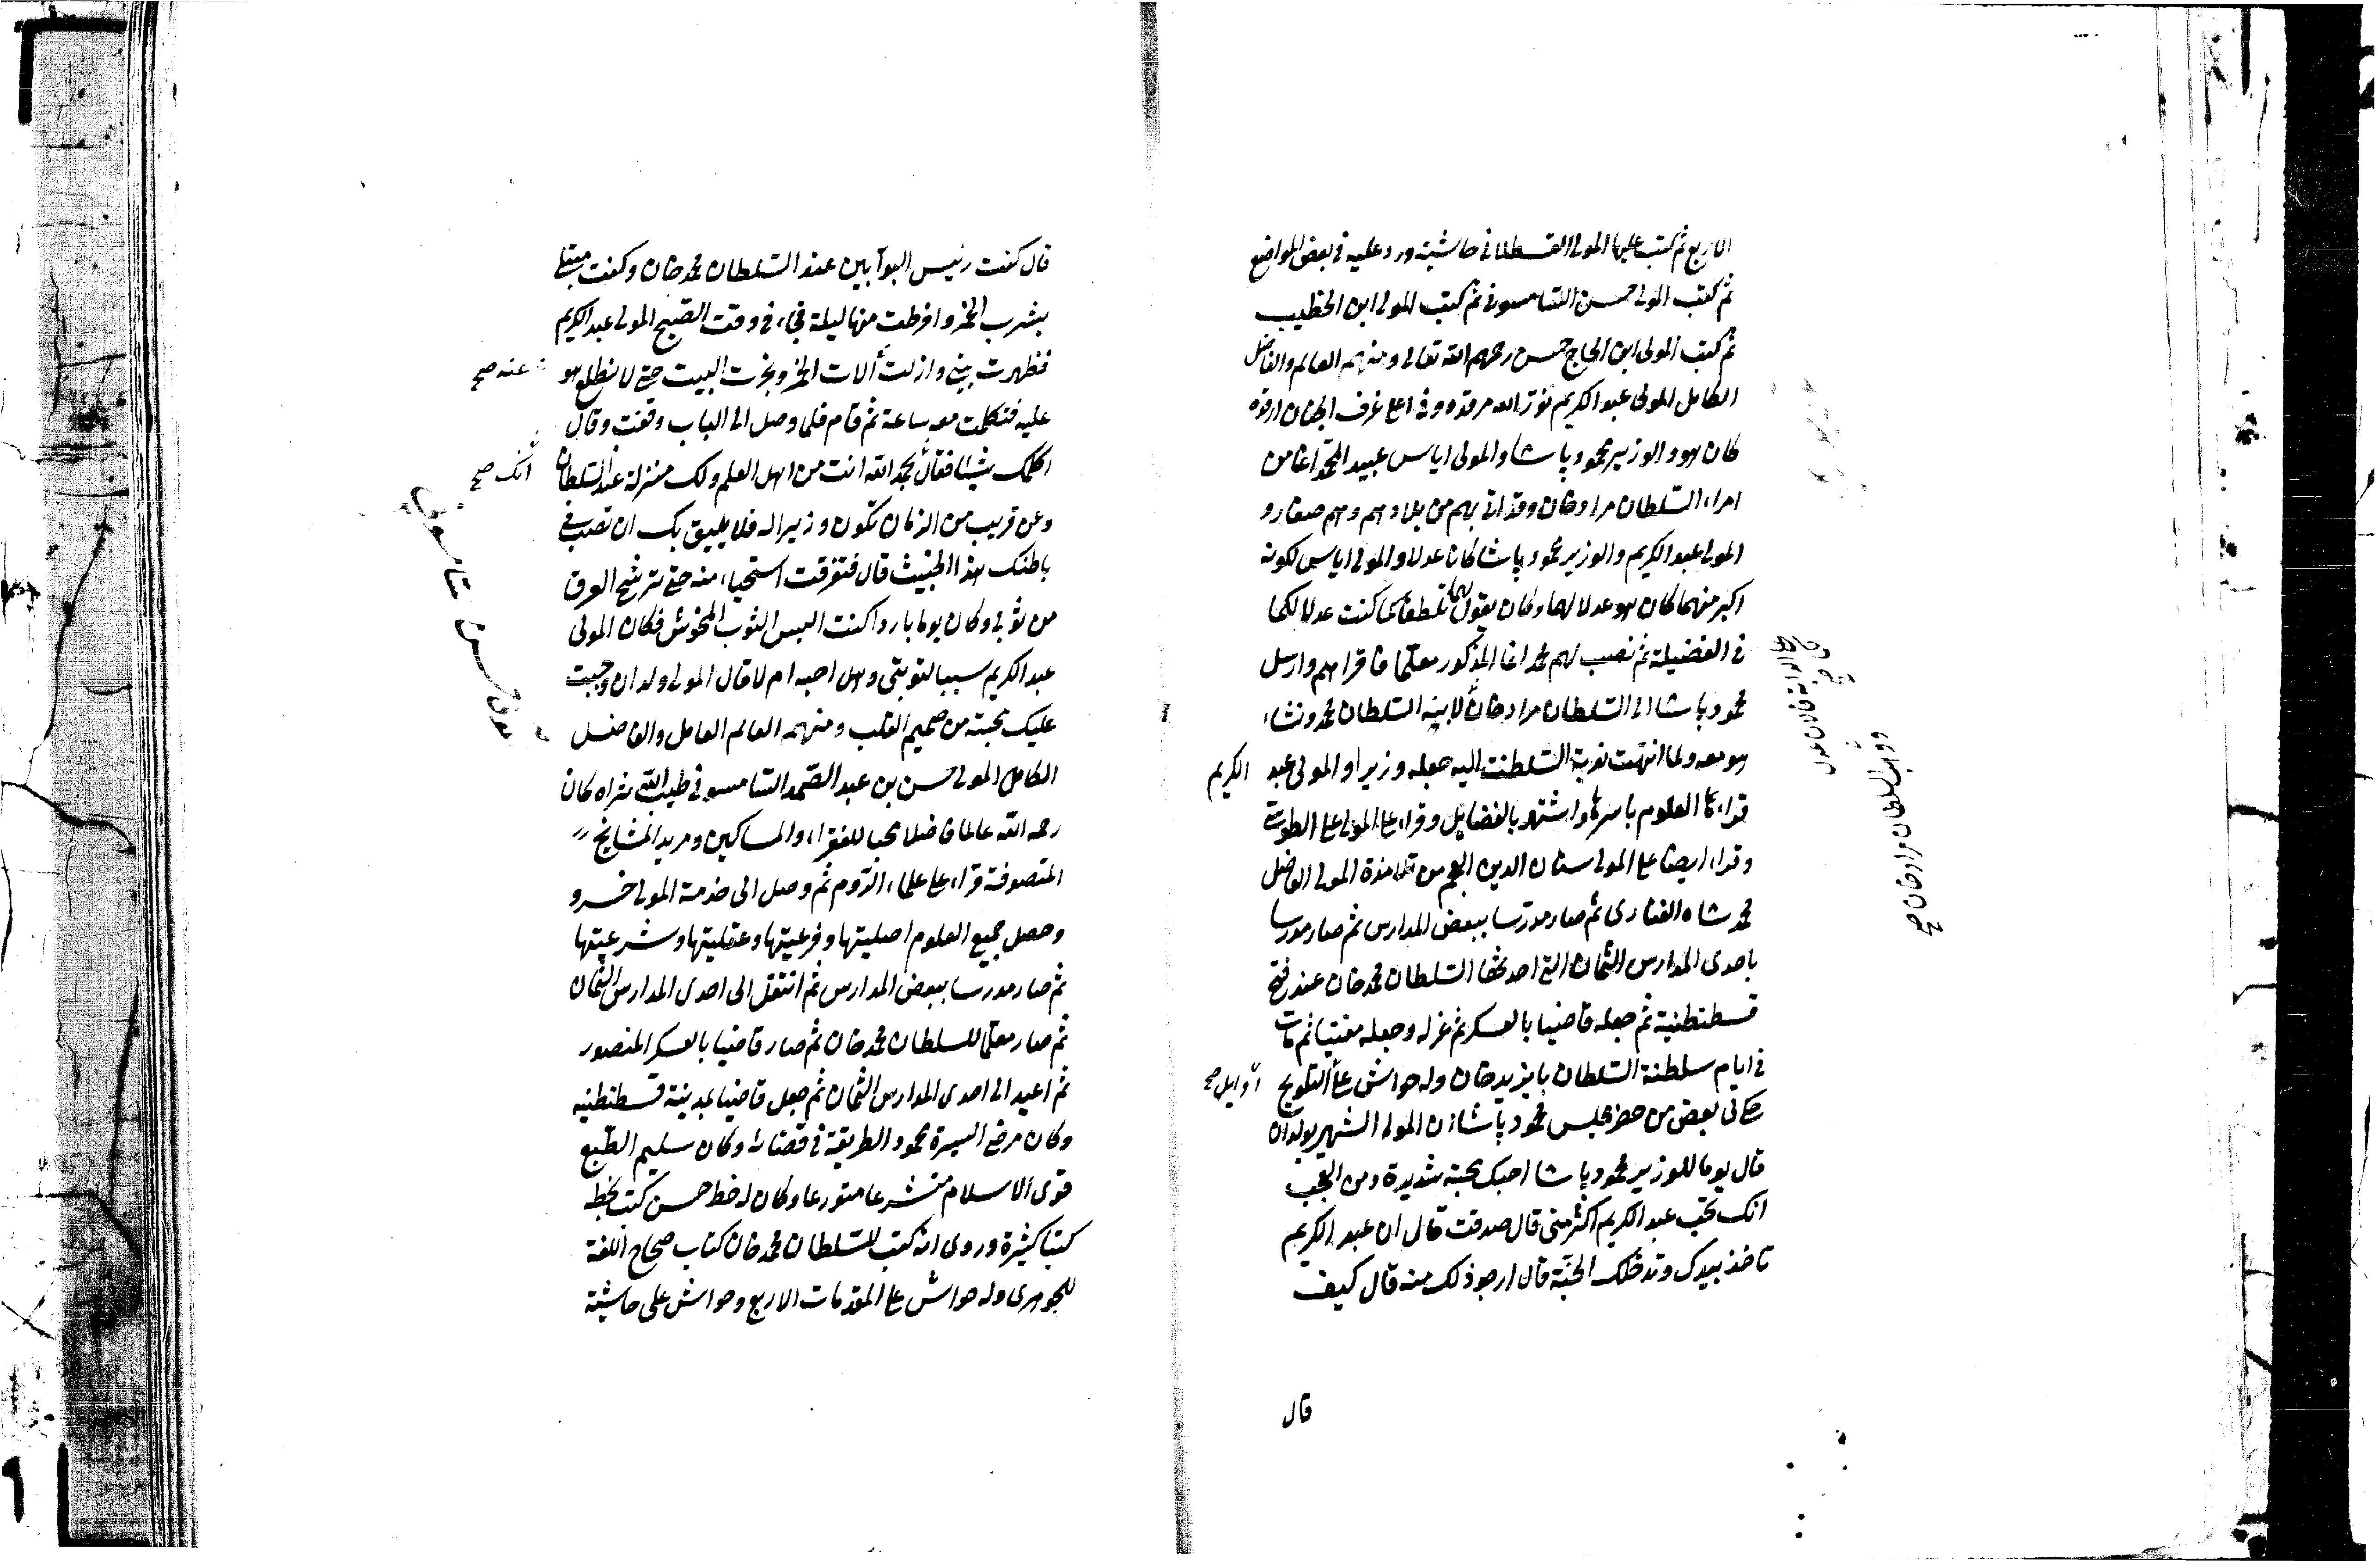 الاربع ثم كتب عليها المولى القسطلانى حاشية ورد عليه فى بعض المواضع
ثم كتب المولى حسن السامسونى ثم كتب المولى ابن الخطيب
ثم كتب المولى ابن الحاج حسن رحمهم الله تعالى ومنهم العالم والفاضل
الكامل المولى عبد الكريم نور الله مرقده وفى اعلى غرف الجنان ارقده
كان هو والوزير محمود پاشا والمولى اياس عبيد المحمد اغا من
امراء السلطان مراد خان وقد اتى بهم من بلادهم وهم صغار و
المولى عبد الكريم والوزير محمود پاشا كانا عدلا والمولى اياس لكونه
اكبر منهما كان هو عدلا لهما وكان يقول لهما تلطفا كما كنت عدلا لكما
فى الفضيلة ثم نصب لهم محمد اغا المذكور معلما فاقراهم وارسل
محمود پاشا الى السلطان مراد خان لابنه السلطان محمد ونشاء
هو معه ولما انتهت نوبة السلطنت اليه جعله وزيرا والمولى عبد الكريم
قراء العلوم باسرها واشتهر بالفضايل وقراء على المولى على الطوسى
وقراء ايضا على المولى سنان الدين العجم من تلامذة المولى الفاضل
محمد شاه الفنارى ثم صار مدرسا ببعض المدارس ثم صار مدرسا
باحدى المدارس الثمان التى احدثها السلطان محمد خان عند فتح
قسطنطنية ثم جعله قاضيا بالعسكر ثم عزله وجعله مفتيا ثم مات
فى ايام سلطنة السلطان بايزيد خان وله حواش على التلويح
اوايل صح
حكى بعض من حضر مجلس محمود پاشا ان المولى الشهير بولدان
قال يوما للوزير محمود پاشا احبك محبة شديدة ومن العجب
انك تحب عبد الكريم اكثر منى قال صدقت قال ان عبد الكريم
تاخذ بيدك وتدخلك الجنة قال ارجو ذلك منه قال كيف
قال
ووهب السلطان مراد خان صح
قال كنت رئيس البوابين عند السلطان محمد خان وكنت مبتلى
بشرب الخمر وافرطت منها ليلة فجاء فى وقت الصبح المولى عبد الكريم
فطهرت بيتى وازلت آلات الخمر وبخرت البيت حتى لا يطلع هو
عنه صح
عليه فتكلمت معه ساعة ثم قام فلما وصل الى الباب وقفت وقال
اكلمك شيئا فقال بحمد الله انت من اهل العلم ولك منزلة عند السلطان
انك صح
وعن قريب من الزمان تكون وزيرا له فلا يليق بك ان تصب فى
باطنك هذا الخبيث قال فتعرقت استحياء منه حتى ترشح العرق
من ثوبى وكان يوما باردا كنت البس الثوب المحوش فكان المولى
عبد الكريم سببا لتوبتى وهل احبه ام لا قال المولى ولدان وجبت
عليك محبته من صميم القلب ومنهم العالم العامل والفاضل
الكامل المولى حسن بن عبد الصمد السامسونى طيب الله ثراه كان
رحمه الله عالما فاضلا محبا للفقراء والمساكين ومريد المشايخ
المتصوفة قراء على علماء الروم ثم وصل الى خدمة المولى خسرو
وحصل جميع العلوم اصليتها وفرعيتها وعقليتها وشرعيتها
ثم صار مدرسا ببعض المدارس ثم انتقل الى احدى المدارس الثمان
ثم صار معلما للسلطان محمد خان ثم صار قاضيا بالعسكر المنصور
ثم اعيد الى احدى المدارس الثمان ثم جعل قاضيا بمدينة قسطنطنيه
وكان مرضى السيرة محمود الطريقة فى قضائه وكان سليم الطبع
قوى الاسلام متشرعا متورعا وكان له خط حسن كتب بخطه
كتبا كثيرة وروى انه كتب للسلطان محمد خان كتاب صحاح اللغة
للجوهرى وله حواش على المقدمات الاربع وحواش على حاشية